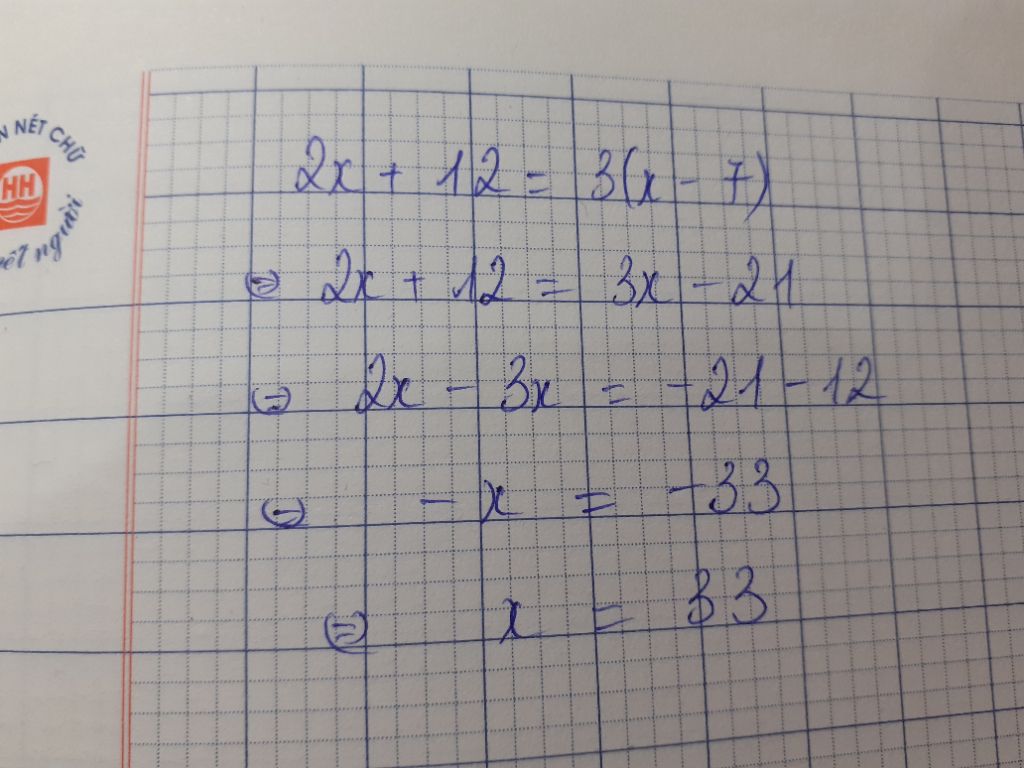 N NÉT CHỮ
HH
ết người
2x + 12 = 3(x - 7)
⇔ 2x + 12 = 3x - 21
⇔ 2x - 3x = -21 - 12
⇔ - x = -33
⇔ x = 33